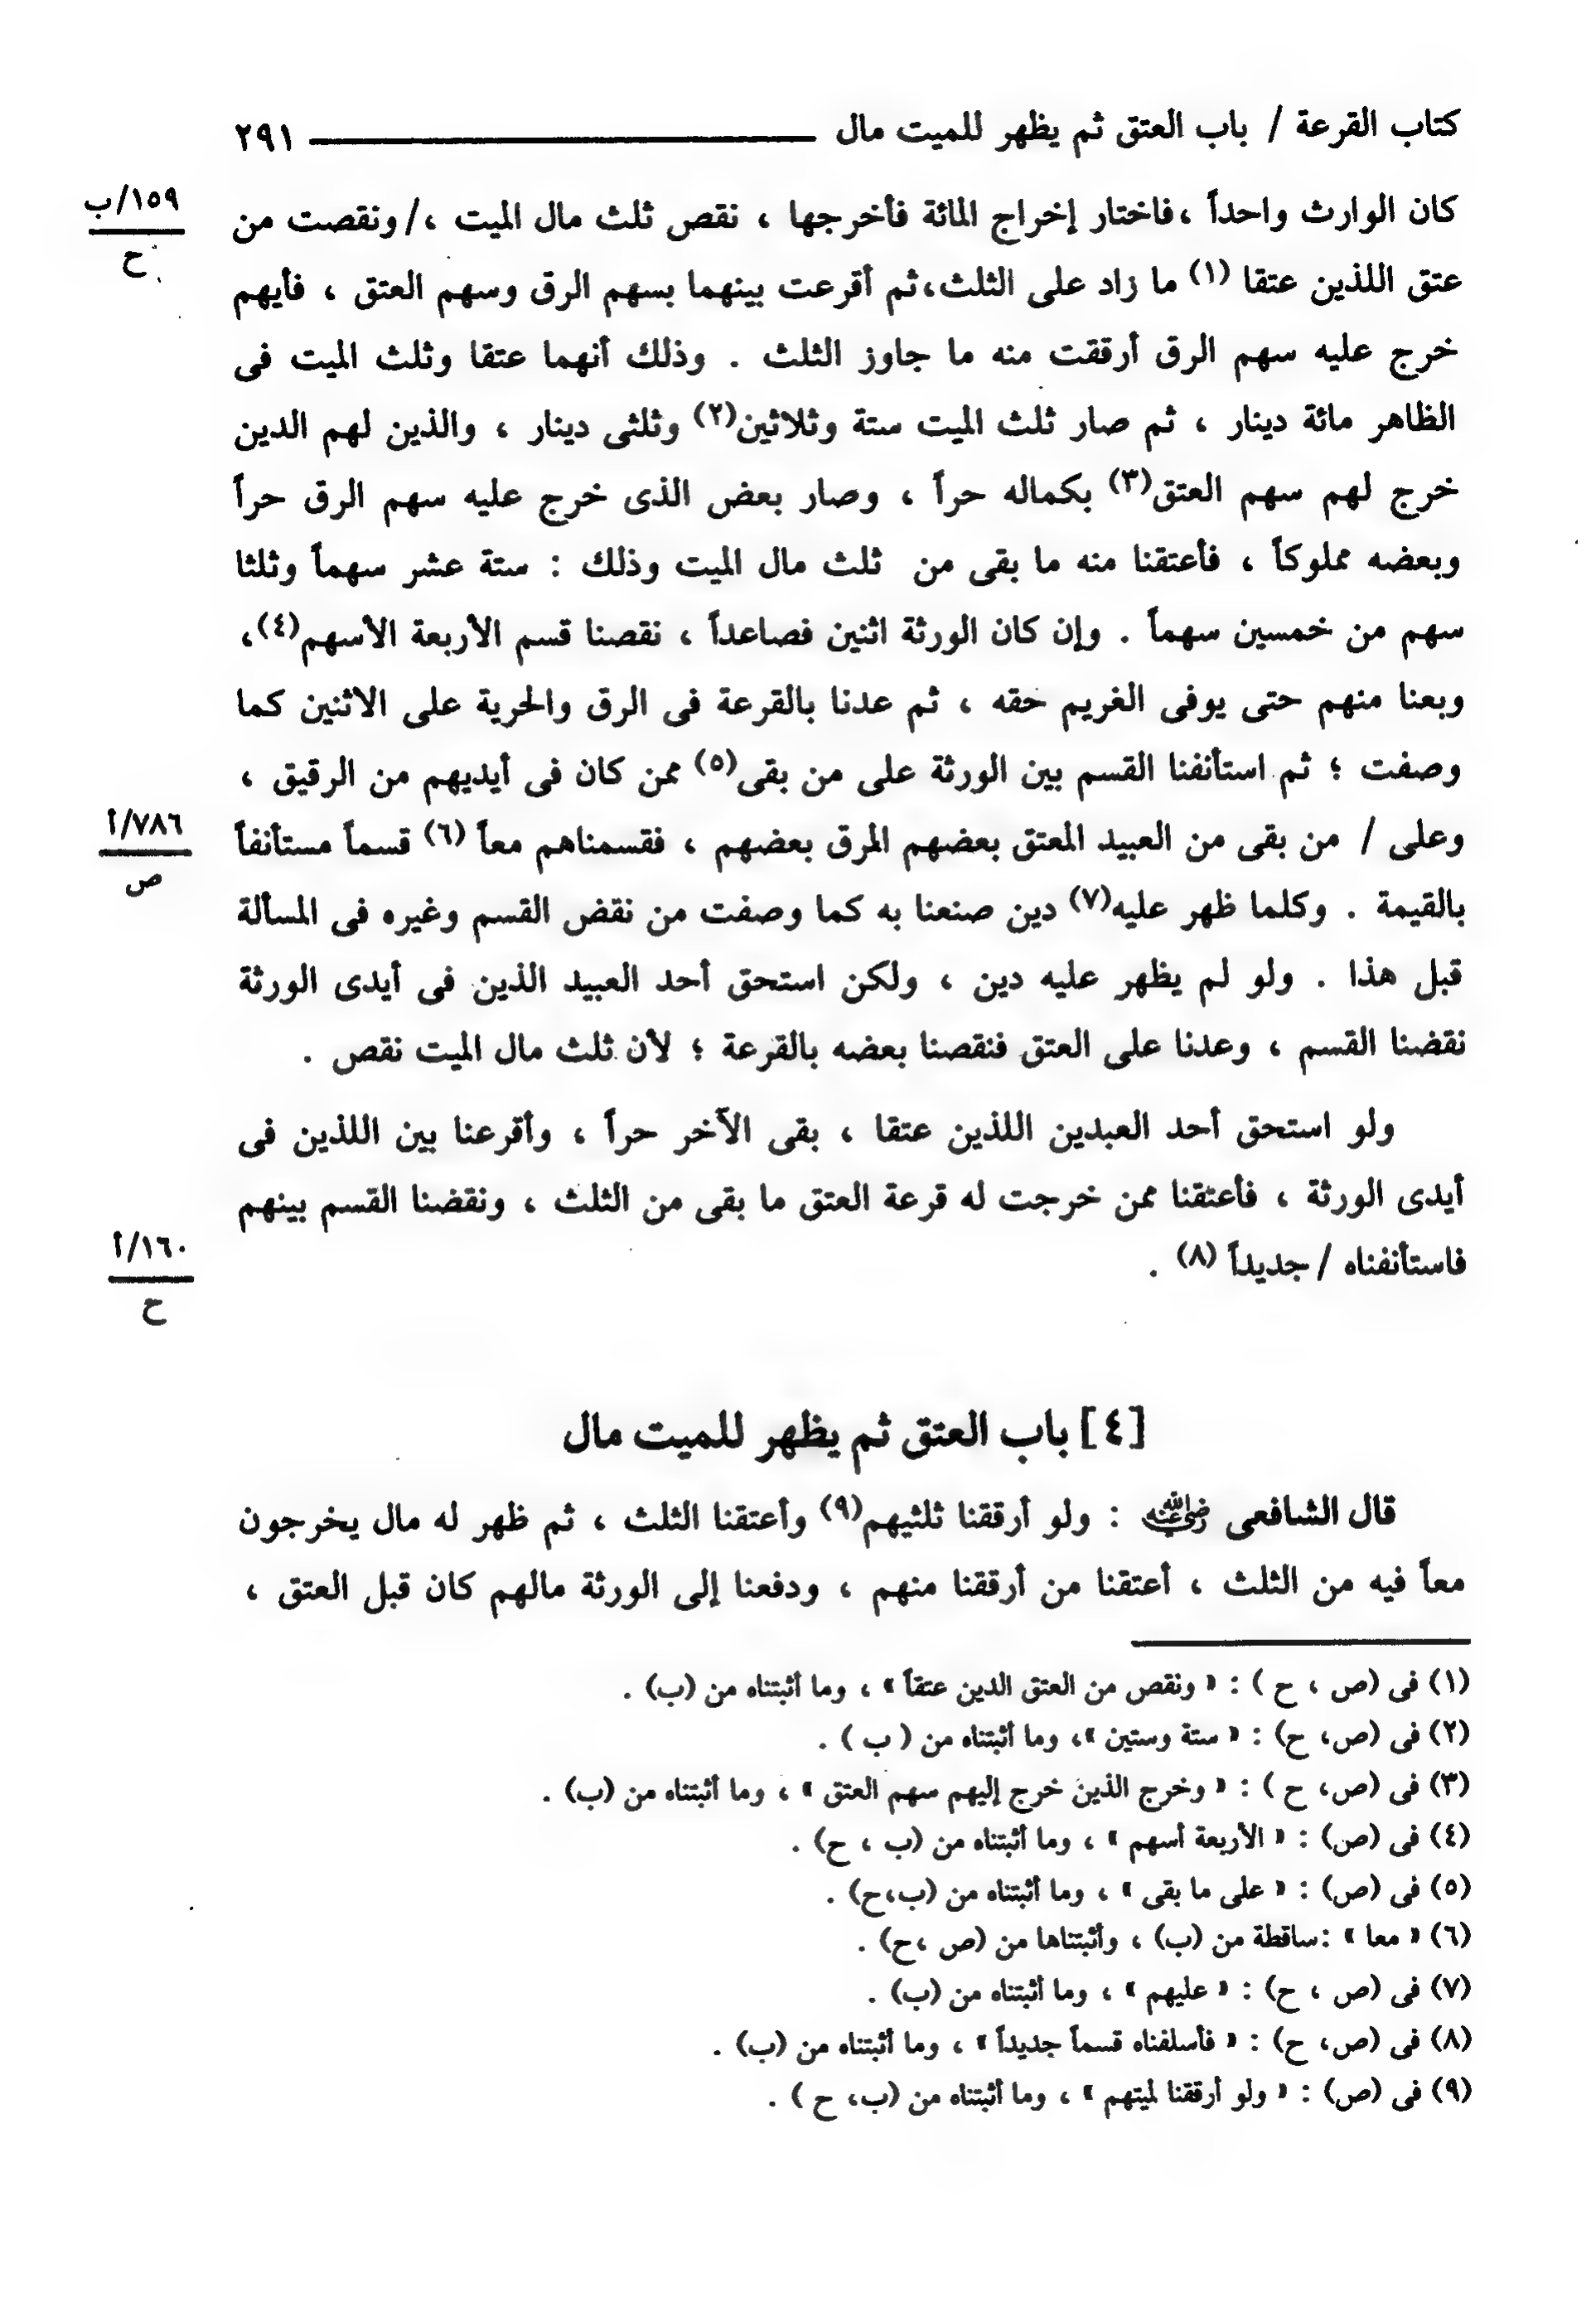 كتاب القرعة / باب العتق ثم يظهر للميت مال ٢٩١
كان الوارث واحداً ،فاختار إخراج المائة فأخرجها ، نقص ثلث مال الميت ،/ونقصت من
١٥٩/ب
ح
عتق اللذين عتقا (١) ما زاد على الثلث،ثم أقرعت بينهما بسهم الرق وسهم العتق ، فأيهم
خرج عليه سهم الرق أرققت منه ما جاوز الثلث . وذلك أنهما عتقا وثلث الميت فى
الظاهر مائة دينار ، ثم صار ثلث الميت ستة وثلاثين(٢) وثلثى دينار ، والذين لهم الدين
خرج لهم سهم العتق(٣) بكماله حراً ، وصار بعض الذى خرج عليه سهم الرق حراً
وبعضه مملوكاً ، فأعتقنا منه ما بقى من ثلث مال الميت وذلك : ستة عشر سهماً وثلثا
سهم من خمسين سهماً . وإن كان الورثة اثنين فصاعداً ، نقصنا قسم الأربعة الأسهم(٤)،
وبعنا منهم حتى يوفى الغريم حقه ، ثم عدنا بالقرعة فى الرق والحرية على الاثنين كما
وصفت ؛ ثم استأنفنا القسم بين الورثة على من بقى(٥) ممن كان فى أيديهم من الرقيق ،
وعلى / من بقى من العبيد المعتق بعضهم المرق بعضهم ، فقسمناهم معاً (٦) قسماً مستأنفاً
٧٨٦/أ
ص
بالقيمة . وكلما ظهر عليه(٧) دين صنعنا به كما وصفت من نقض القسم وغيره فى المسألة
قبل هذا . ولو لم يظهر عليه دين ، ولكن استحق أحد العبيد الذين فى أيدى الورثة
نقضنا القسم ، وعدنا على العتق فنقصنا بعضه بالقرعة ؛ لأن ثلث مال الميت نقص .
ولو استحق أحد العبدين اللذين عتقا ، بقى الآخر حراً ، وأقرعنا بين اللذين فى
أيدى الورثة ، فأعتقنا ممن خرجت له قرعة العتق ما بقى من الثلث ، ونقضنا القسم بينهم
فاستأنفناه / جديداً (٨) .
١٦٠/أ
ح
[٤] باب العتق ثم يظهر للميت مال
قال الشافعى رضي الله عنه : ولو أرققنا ثلثيهم(٩) وأعتقنا الثلث ، ثم ظهر له مال يخرجون
معاً فيه من الثلث ، أعتقنا من أرققنا منهم ، ودفعنا إلى الورثة مالهم كان قبل العتق ،
(١) فى (ص ، ح ) : « ونقص من العتق الذين عتقاً » ، وما أثبتناه من (ب) .
(٢) فى (ص، ح) : « ستة وستين »، وما أثبتناه من ( ب ) .
(٣) فى (ص، ح ) : « وخرج الذين خرج إليهم سهم العتق » ، وما أثبتناه من (ب) .
(٤) فى (ص) : « الأربعة أسهم » ، وما أثبتناه من (ب ، ح) .
(٥) فى (ص) : « على ما بقى » ، وما أثبتناه من (ب،ح) .
(٦) « معا » :ساقطة من (ب) ، وأثبتناها من (ص ،ح) .
(٧) فى (ص ، ح) : « عليهم » ، وما أثبتناه من (ب) .
(٨) فى (ص، ح) : « فأسلفناه قسماً جديداً » ، وما أثبتناه من (ب) .
(٩) فى (ص) : « ولو أرققنا لميتهم » ، وما أثبتناه من (ب، ح ) .